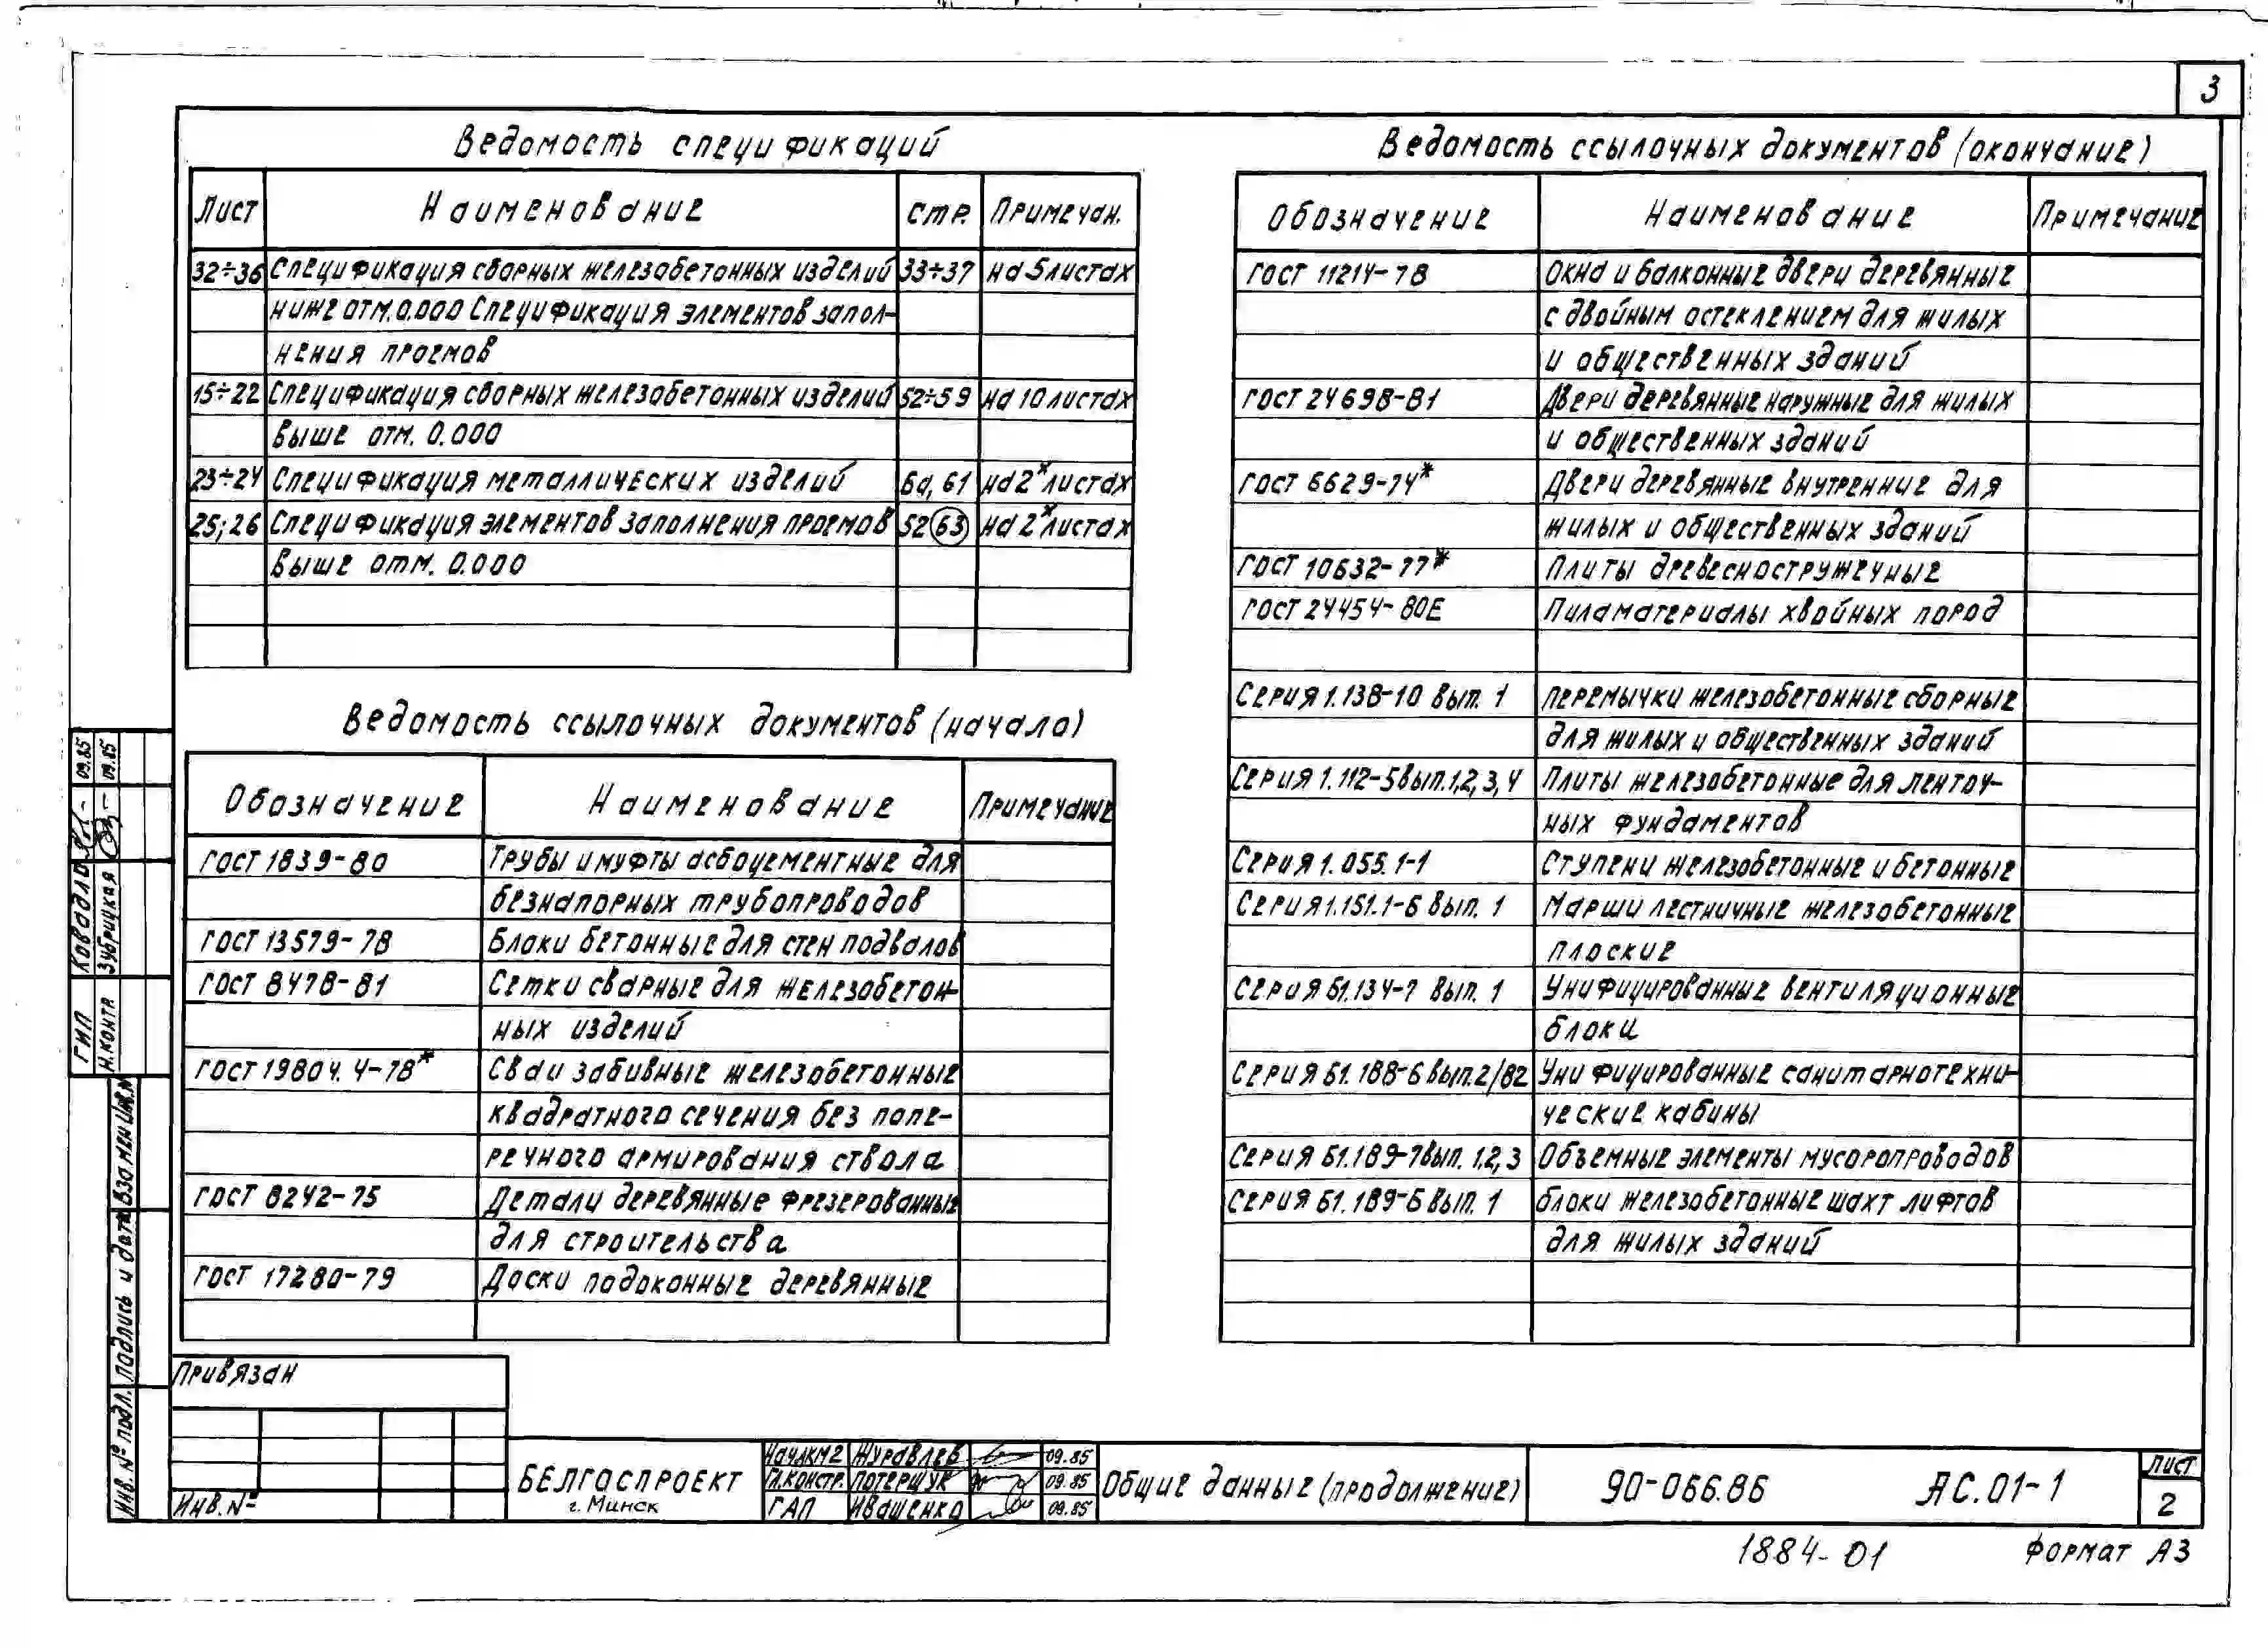 3
Ведомость спецификаций
Лист Наименование Стр. Примечан.
32÷36 Спецификация сборных железобетонных изделий 33÷37 на 5 листах
ниже отм. 0.000 Спецификация элементов запол-
нения проемов
15÷22 Спецификация сборных железобетонных изделий 52÷59 на 10 листах
выше отм. 0.000
23÷24 Спецификация металлических изделий 60, 61 на 2* листах
25; 26 Спецификация элементов заполнения проемов 52 63 на 2* листах
выше отм. 0.000
Ведомость ссылочных документов (начало)
Обозначение Наименование Примечание
ГОСТ 1839-80 Трубы и муфты асбоцементные для
безнапорных трубопроводов
ГОСТ 13579-78 Блоки бетонные для стен подвалов
ГОСТ 8478-81 Сетки сварные для железобетон-
ных изделий
ГОСТ 19804.4-78* Сваи забивные железобетонные
квадратного сечения без попе-
речного армирования ствола
ГОСТ 8242-75 Детали деревянные фрезерованные
для строительства
ГОСТ 17280-79 Доски подоконные деревянные
Ведомость ссылочных документов (окончание)
Обозначение Наименование Примечание
ГОСТ 11214-78 Окна и балконные двери деревянные
с двойным остеклением для жилых
и общественных зданий
ГОСТ 24698-81 Двери деревянные наружные для жилых
и общественных зданий
ГОСТ 6629-74* Двери деревянные внутренние для
жилых и общественных зданий
ГОСТ 10632-77* Плиты древесностружечные
ГОСТ 24454-80Е Пиломатериалы хвойных пород
Серия 1.138-10 вып. 1 Перемычки железобетонные сборные
для жилых и общественных зданий
Серия 1.112-5 вып. 1,2,3,4 Плиты железобетонные для ленточ-
ных фундаментов
Серия 1.055.1-1 Ступени железобетонные и бетонные
Серия 1.151.1-6 вып. 1 Марши лестничные железобетонные
плоские
Серия Б1.134-7 вып. 1 Унифицированные вентиляционные
блоки
Серия Б1.188-6 вып. 2/82 Унифицированные санитарнотехни-
ческие кабины
Серия Б1.189-7 вып. 1,2,3 Объемные элементы мусоропроводов
Серия Б1.189-6 вып. 1 Блоки железобетонные шахт лифтов
для жилых зданий
ГИП Ковадло 09.85
Н.контр Зубрицкая 09.85
Взамен инв.№
Подпись и дата
Инв. № подл.
Привязан
Инв. №
БЕЛГОСПРОЕКТ
г. Минск
Нач.АКМ2 Журавлев 09.85
Гл.констр. Потерщук 09.85
ГАП Иващенко 09.85
Общие данные (продолжение)
90-066.86 АС.01-1
Лист
2
1884-01
Формат А3